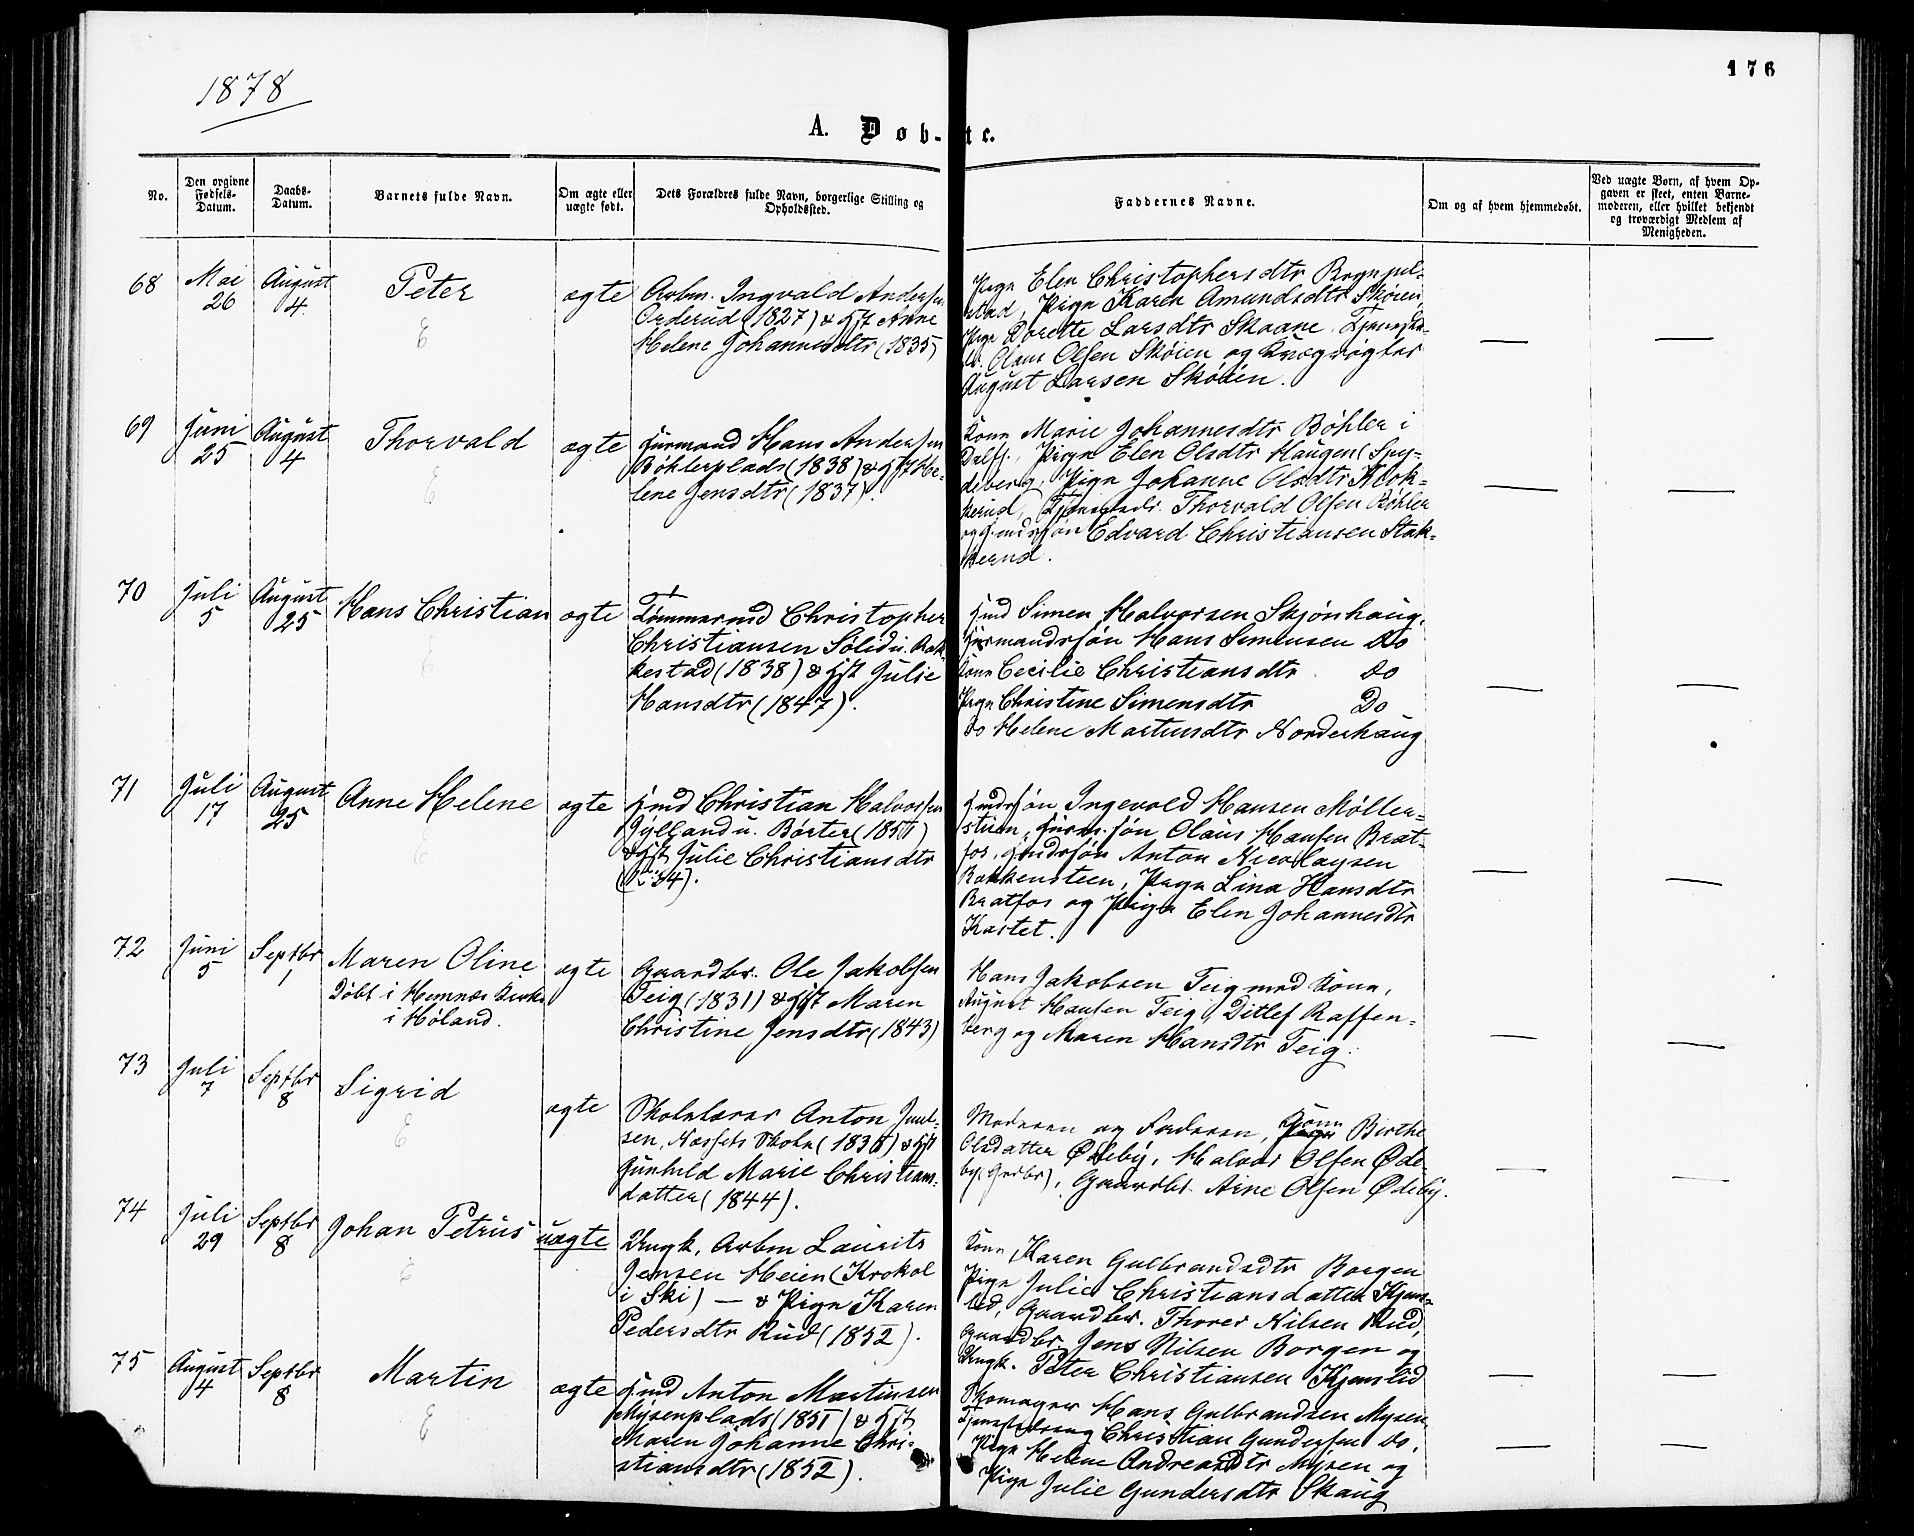 1878
176
A. Døb-te.
No.
Den opgivne Fødsels-Datum.
Daabs-Datum.
Barnets fulde Navn.
Om ægte eller uægte født.
Dets Forældres fulde Navn, borgerlige Stilling og Opholdssted.
Faddernes Navne.
Om og af hvem hjemmedøbt.
Ved uægte Børn, af hvem Opgaven er skeet, enten Barnemoderen, eller hvilket bekjendt og troværdigt Medlem af Menigheden.
68
Mai 26
August 4
Peter
ægte
Arbm. Ingvald Andersen
Orderud (1827) & Hst Anne
Helene Johannesdtr (1835)
Pige Elen Christophersdtr Rognpil-
stad, Pige Karen Amundsdtr Skøien,
Pige Dorette Larsdtr Skaane, Tjeneste-
dr. Olaus Olsen Skøien og Kvægrøgter
August Larsen Skøien.
69
Juni 25
August 4
Thorvald
ægte
Huusmand Hans Andersen
Bøhlerplads (1838) & Hst He-
lene Jensdtr (1837).
Kone Marie Johannesdtr Bøhler i
Pige Elen Olsdtr Haugen (Spy-
deberg, Pige Johanne Olsdtr Klok-
kerud, Tjenestedr. Thorvald Olsen Bøhler
og Edvard Christiansen Stak-
kerud.
70
Juli 5
August 25
Hans Christian
ægte
Tømmermd Christopher
Christiansen Solid u. Rak-
kestad (1838) & Hst Julie
Hansdtr (1847).
Hmd Simen Halvorsen Skjønhaug,
Husmandssøn Hans Simensen Do
Kone Cecilie Christiansdtr Do
Pige Christine Simensdtr Do
Do Helene Martinsdtr Norderhaug
71
Juli 17
August 25
Anne Helene
ægte
Hmd Christian Halvorsen
Jylland u. Børter (1851)
& Hst Julie Christiansdtr
Hmdssøn Ingevold Hansen Møller-
stuen, Husm.søn Olaus Hansen Brat-
fos, Hmdssøn Anton Nicolaysen
Bakkensteen, Pige Lina Hansdtr
Bratfos og Pige Elen Johannesdtr
Kastet.
72
Juni 5
Septbr 1
Maren Oline
Døbt i Hemnæs Kirke
i Høland.
ægte
Gaardbr. Ole Jakobsen
Teig (1831) & Hst Maren
Christine Jensdtr (1843)
Hans Jakobsen Teig med Kone,
August Hansen Teig, Ditlef Raffen-
berg og Maren Hansdtr Teig.
73
Juli 7
Septbr 8
Sigrid
ægte
Skolelærer Anton Juul-
sen, Næssets Skole & Hst
Gunhild Marie Christians-
datter (1844).
Moderen og Faderen, Kone Birthe
Olsdatter Ødeby, Halvor Olsen Øde-
by (Gaardbr), Gaardbr. Arne Olsen Ødeby.
74
Juli 29
Septbr 8
Johan Petrus
uægte
Ungk. Arbm Laurits
Jensen Heien (Krokol
i Ski) — & Pige Karen
Pedersdtr Rud (1852).
Kone Karen Gulbrandsdtr Borgen
Pige Julie Christiansdatter Kjens-
lid, Gaardbr. Thorer Nilsen Rud,
Gaardbr Jens Nilsen Borgen og
Ungk. Peter Christiansen Kjenslid
75
August 4
Septbr 8
Martin
ægte
Hmd Anton Martinsen
Mysenplads (1851) & Hst
Maren Johanne Chri-
stiansdtr (1852).
Skomager Hans Gulbrandsen Mysen
Tjenestedreng Christian Gundersen Do,
Pige Helene Andreasdtr Mysen og
Pige Julie Gundersdtr Skaug